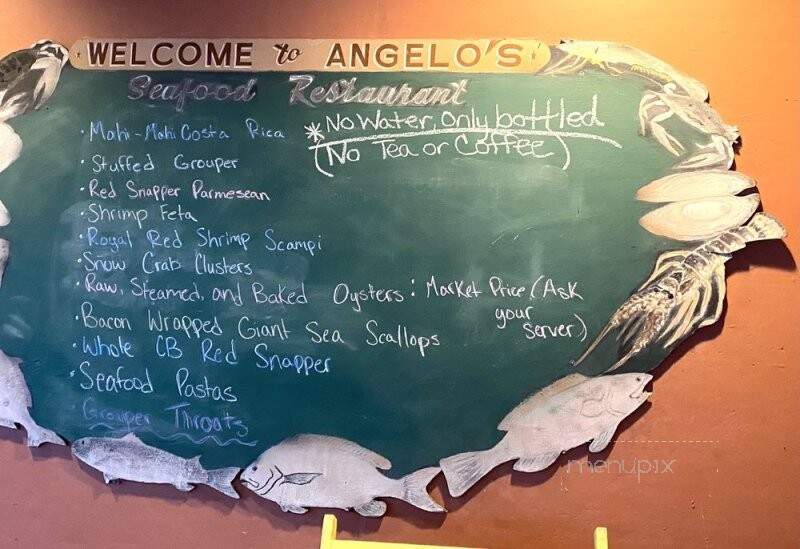 WELCOME to ANGELO'S
Seafood Restaurant
• Mahi-Mahi Costa Rica
* No Water, Only bottled
(No Tea or Coffee)
• Stuffed Grouper
• Red Snapper Parmesean
• Shrimp Feta
• Royal Red Shrimp Scampi
• Snow Crab Clusters
• Raw, Steamed, and Baked Oysters: Market Price (Ask
your
server)
• Bacon Wrapped Giant Sea Scallops
• Whole CB Red Snapper
• Seafood Pastas
• Grouper Throats
menupix